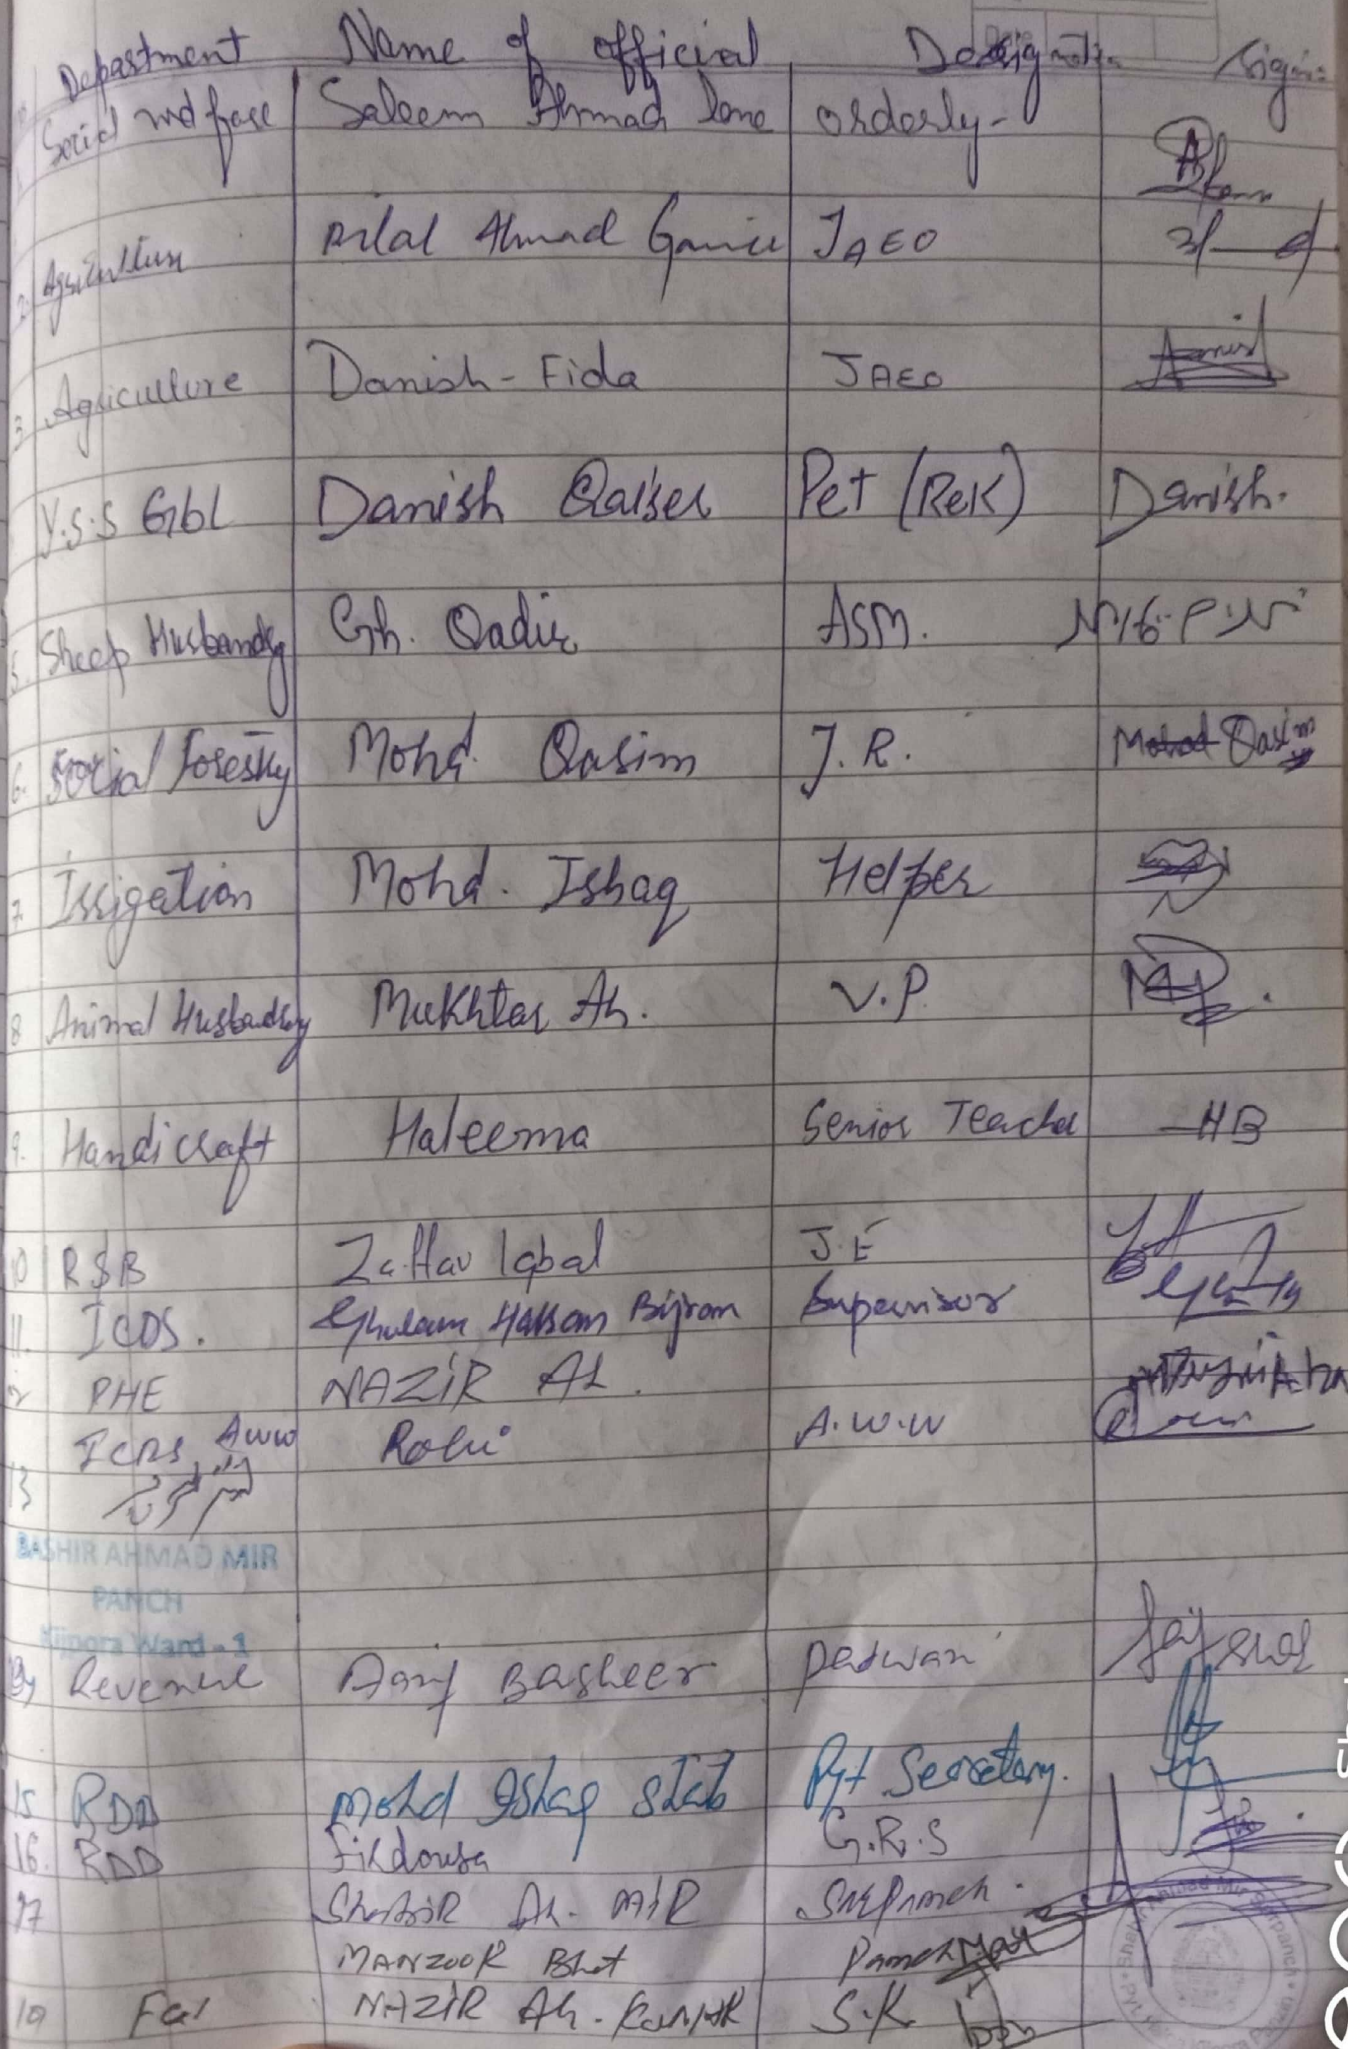 Department Name of official Designation Sign
Social Saleem Ahmad Lone orderly-
2. Agriculture Bilal Ahmad Ganie JAEO
3 Agriculture Danish-Fida JAEO
Y.S.S Gbl Danish Qaiser Pet (ReK) Danish.
5. Sheep Husbandry Gh. Qadir ASM.
6. Social Forestry Mohd. Qasim J.R. Mohd Qasim
7. Irrigation Mohd. Ishaq Helper
8 Animal Husbandry Mukhtar Ah. V.P.
9. Handicraft Haleema Senior Teacher HB
10 R&B Zaffar Iqbal J.E
11. ICDS. Ghulam Hassan Supervisor
12 PHE NAZIR Ah.
13 ICDS, AWW A.W.W
BASHIR AHMAD MIR
PANCH
Kijpora Ward - 1
Revenue Basheer patwari
15 RDD Mohd Ishaq Pyt Secretary.
16. RDD Firdousa G.R.S
17 Shabir Ah. MIR Sarpanch.
MANZOOR Bhat Panch
19 NAZIR Ah. S.K